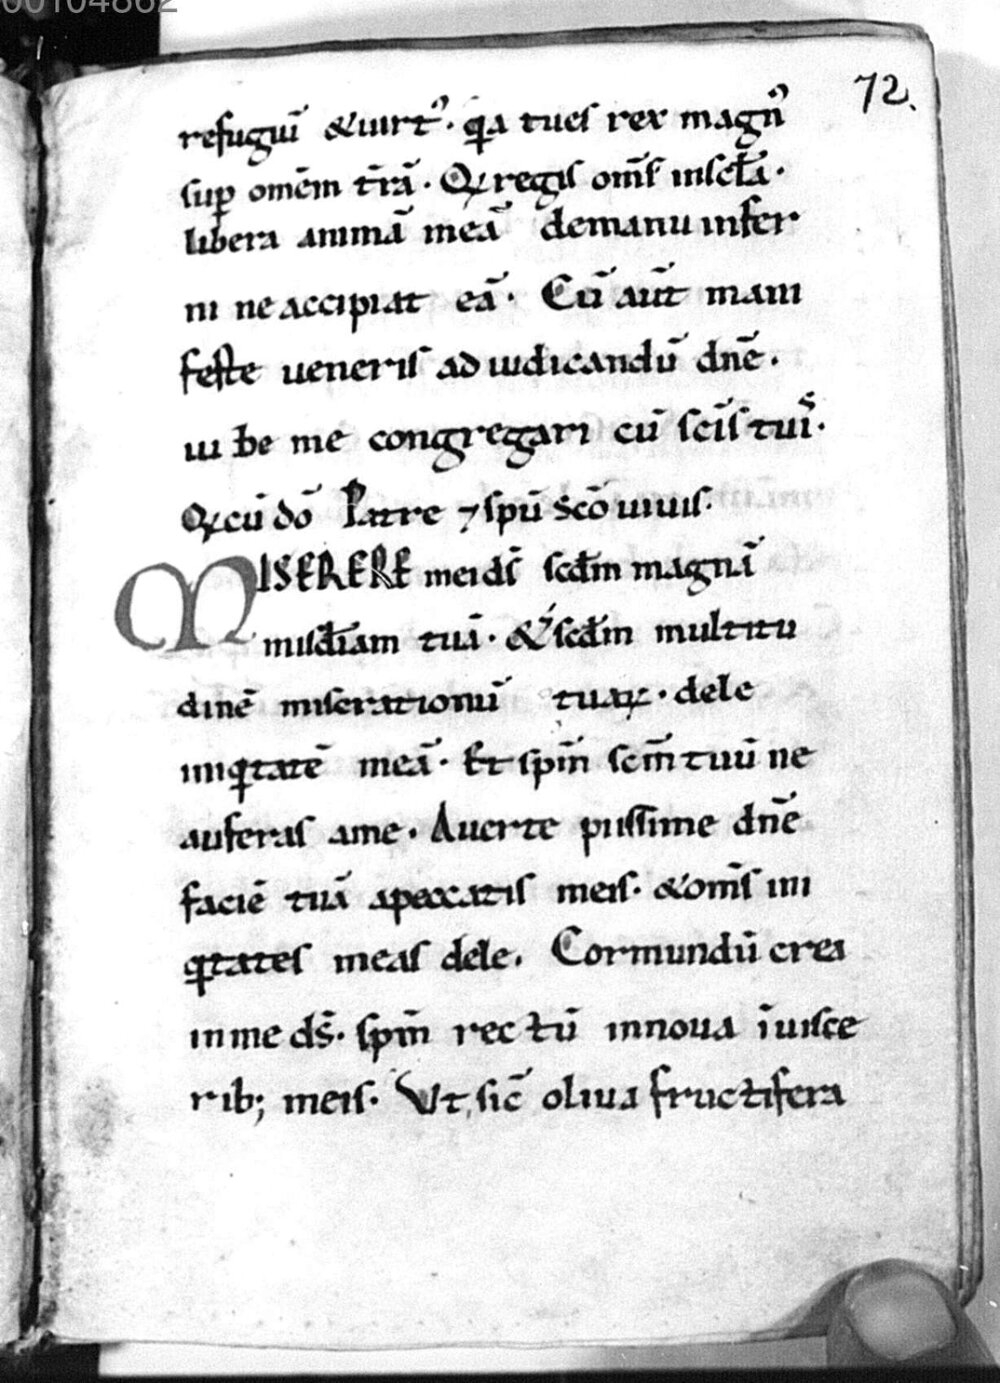 00104862
72.
refugiũ &uirt᾿. q̄a tu es rex magn᾿
sup̱ omẽm t̃rã. Qꝛ regis om̃s in sc̃ła.
libera animã meã de manu infer
ni ne accipiat eã. Cũ aũt mani
feste ueneris ad iudicandũ dñe.
iu be me congregari cũ sc̃is tuiˢ.
Qꝛ cũ dõ Patre ⁊ sp̃u s̃cõ uiuis.
MISERERE mei ds̃ scđm magnã
mis̃điam tuã. &scđm multitu
dinẽ miserationũ tuaꝝ. dele
iniq̇tatẽ meã. Et sp̃m sc̃m tuũ ne
auferas a me. Auerte piissime dñe
faciẽ tuã apeccatis meis. &om̃s ini
q̇tates meas dele. Cor mundũ crea
in me ds̃. sp̃m rectũ innoua ĩ uisce
rib; meis. Ut sic̃ oliua fructifera